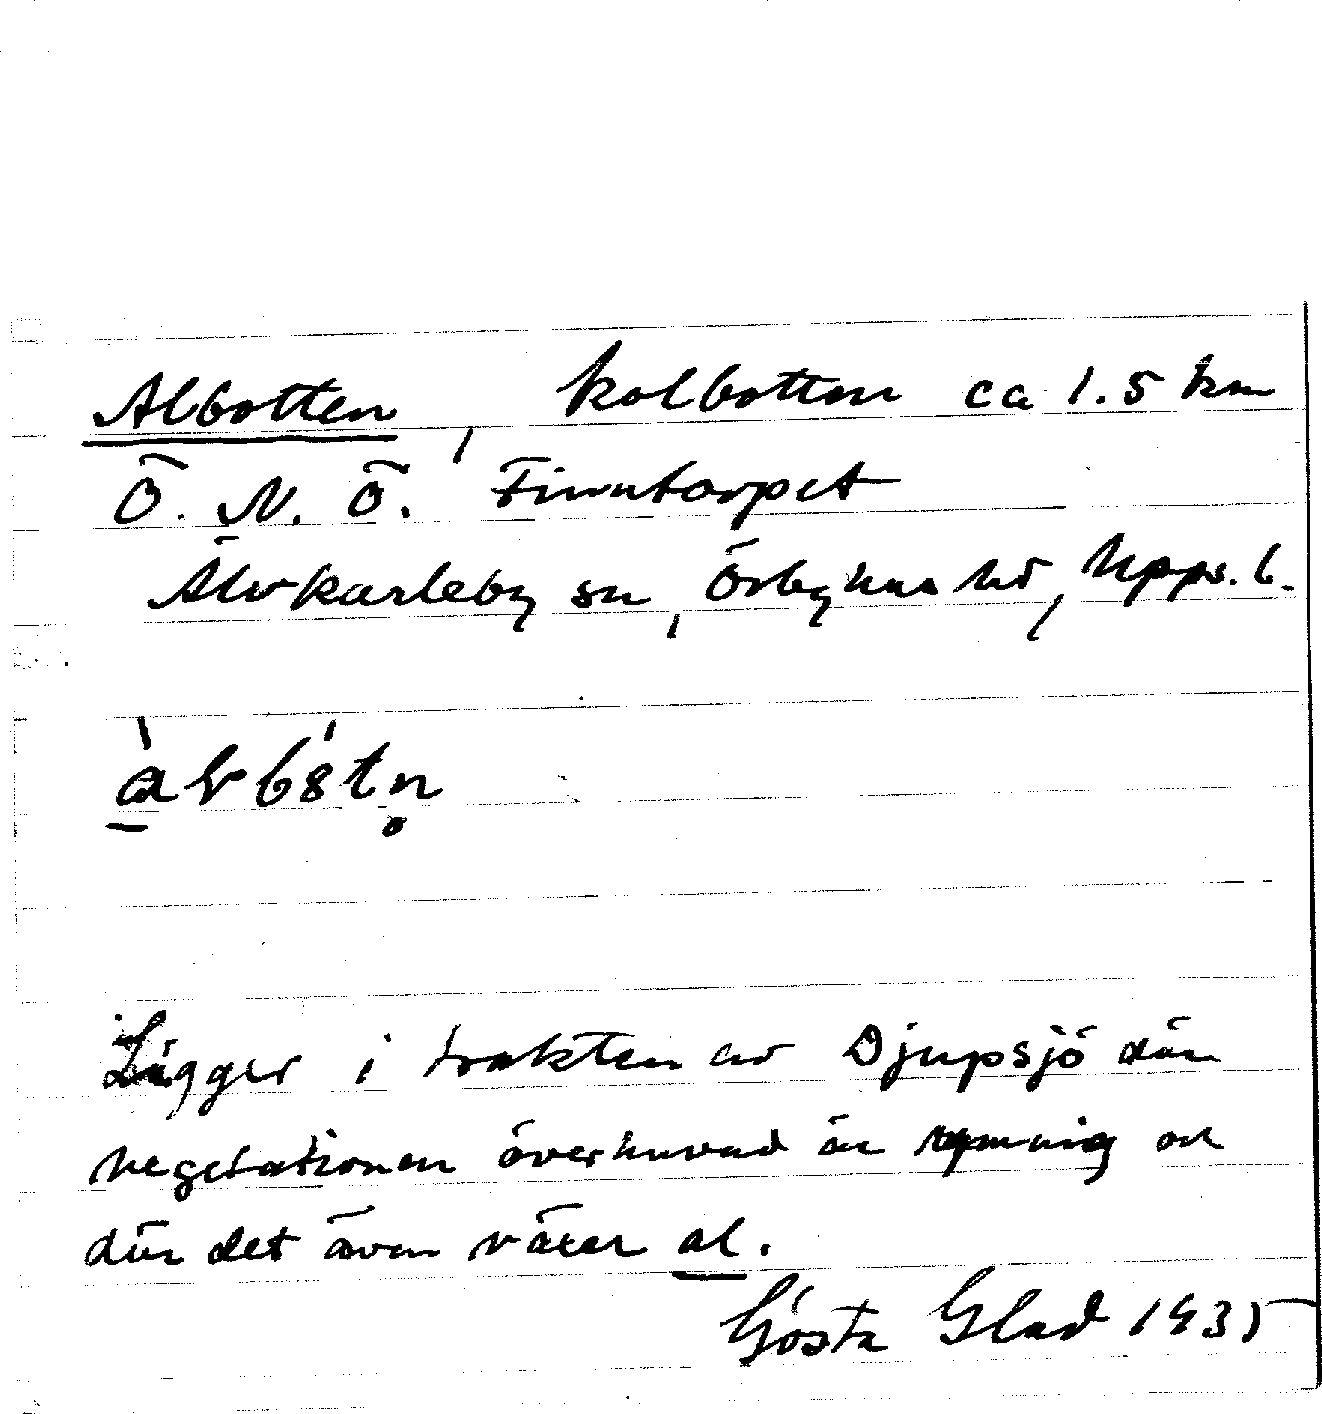 Albotten, kolbotten ca 1.5 km
Ö. N. Ö. Finntorpet
Älvkarleby sn, Örbyhus hd, Upps. l.
Ligger i trakten av Djupsjö där
vegetationen överhuvud är ymnig och
där det även växer al.
Gösta Glad 1935